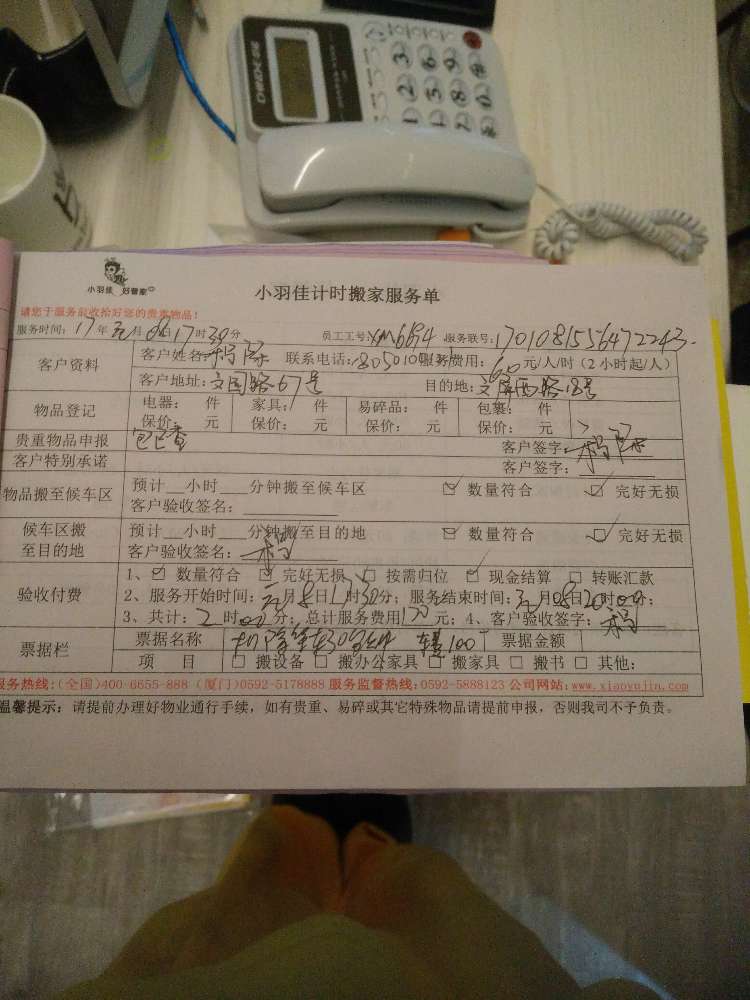 CHINO-E
小羽佳 好管家
小羽佳计时搬家服务单
请您于服务前收拾好您的贵重物品!
服务时间: 17年元月 日17时30分 员工工号: XM6694 服务联号: 1701081556472243
客户资料 客户姓名: 杨 联系电话: 服务费用: 60元/人/时(2小时起/人)
客户地址: 文园路67号 目的地: 文屏西路18号
物品登记 电器: 件 家具: 件 易碎品: 件 包裹: 件
保价: 元 保价: 元 保价: 元 保价: 元
贵重物品申报 已检查 客户签字: 杨
客户特别承诺 客户签字:
物品搬至候车区 预计__小时___分钟搬至候车区 ☑ 数量符合 ☑ 完好无损
客户验收签名:
候车区搬至目的地 预计__小时___分钟搬至目的地 ☑ 数量符合 ☑ 完好无损
客户验收签名: 杨
验收付费 1、☑ 数量符合 ☑ 完好无损 □ 按需归位 ☑ 现金结算 □ 转账汇款
2、服务开始时间: 元月8日17时30分; 服务结束时间: 元月08日20时00分;
3、共计: 2时 分; 总计服务费用 元; 4、客户验收签字: 杨
票据栏 票据名称 100 票据金额
项 目 □ 搬设备 □ 搬办公家具 □ 搬家具 □ 搬书 □ 其他:
服务热线:(全国)400-6655-888 (厦门)0592-5178888 服务监督热线:0592-5888123 公司网站:www.xiaoyujia.com
温馨提示: 请提前办理好物业通行手续,如有贵重、易碎或其它特殊物品请提前申报,否则我司不予负责。